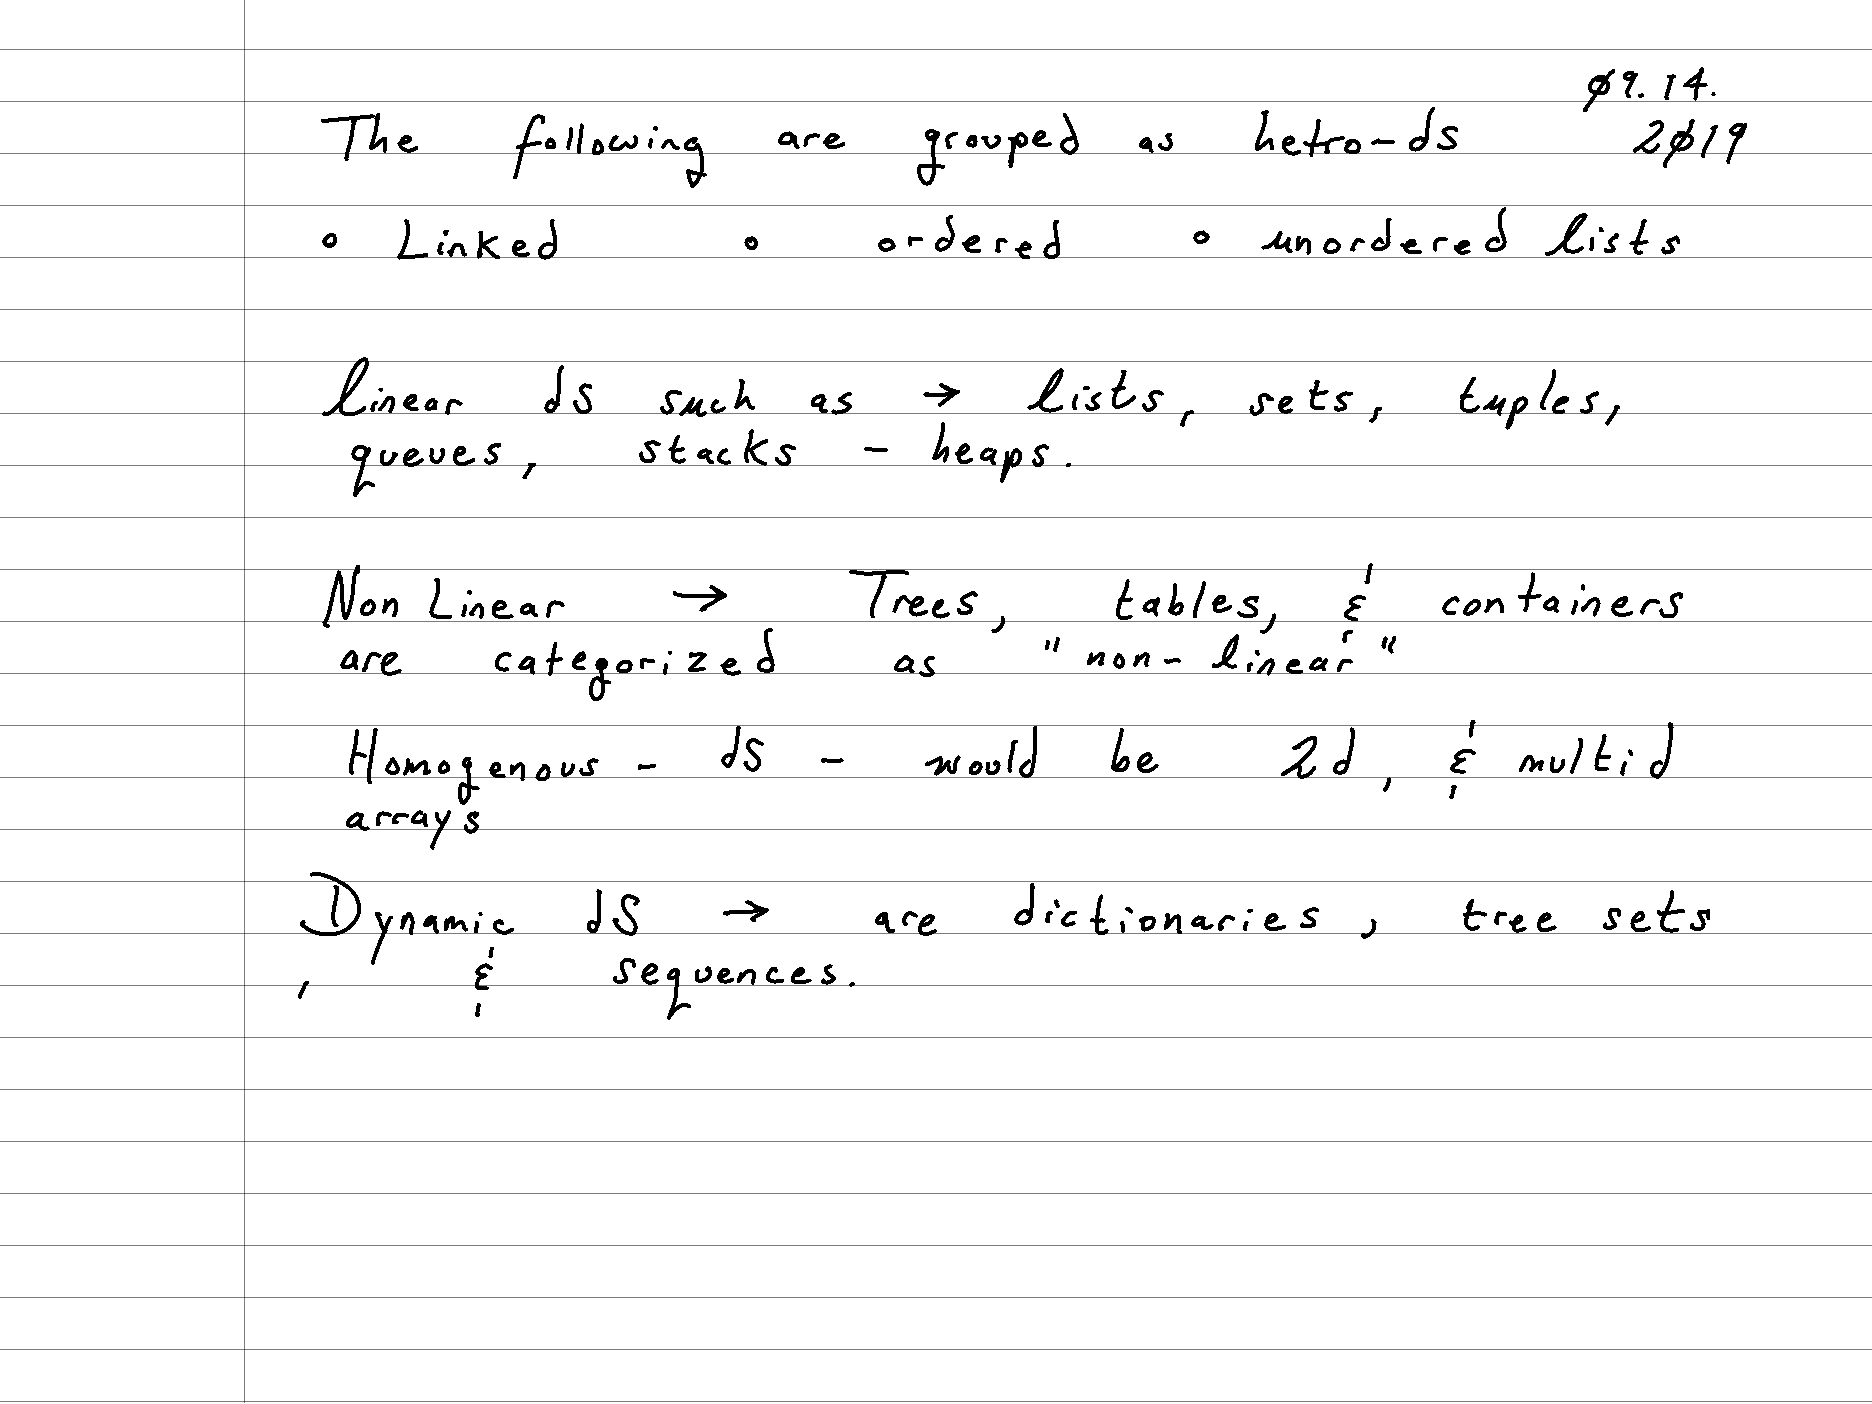 ø9.14.
The following are grouped as hetro-ds 2ø19
• Linked • ordered • unordered lists
linear ds such as → lists, sets, tuples,
queues, stacks - heaps.
Non Linear → Trees, tables, & containers
are categorized as "non-linear"
Homogenous - ds - would be 2d, & multid
arrays
Dynamic ds → are dictionaries, tree sets
, & sequences.